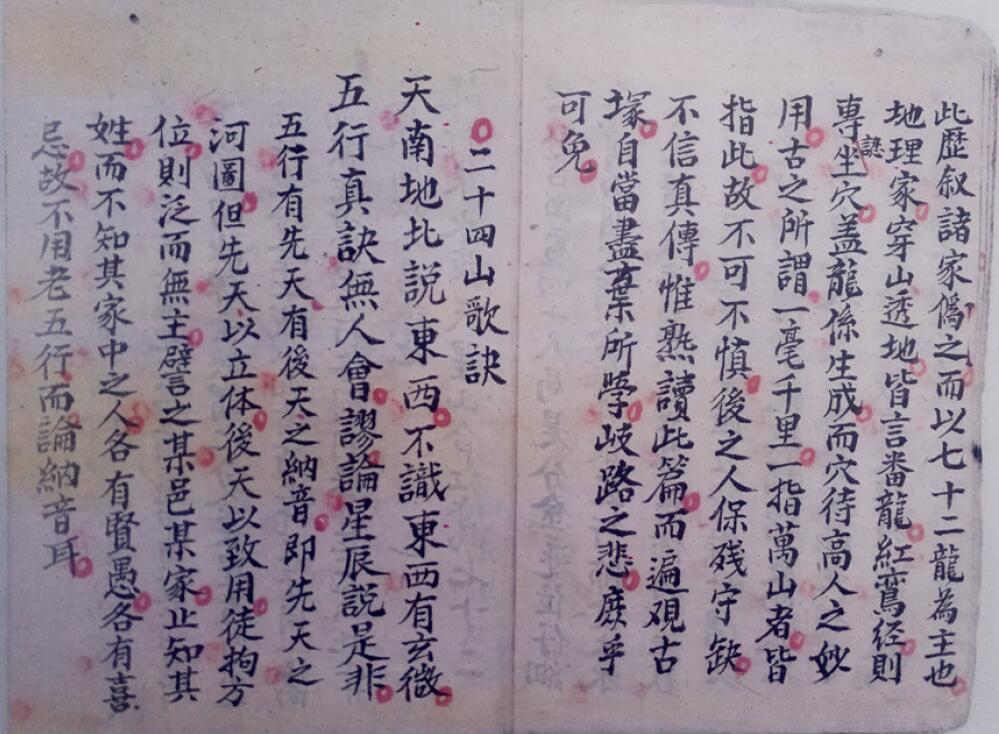 此歷叙諸家偽之而以七十二龍為主也
地理家穿山透地皆言番龍紅鸞经則
專謎坐穴盖龍係生成而穴待高人之妙
用古之所謂一毫千里一指萬山者皆
指此故不可不慎後之人保残守缺
不信真傳惟熟讀此篇而遍观古
塚自當盡棄所學岐路之悲庶乎
可免
二十四山歌訣
天南地北説東西不識東西有玄微
五行真訣無人會謬論星辰說是非
五行有先天有後天之納音即先天之
河圖但先天以立体後天以致用徒拘方
位則泛而無主譬之某邑某家止知其
姓而不知其家中之人各有賢愚各有喜
忌故不用老五行而論納音耳